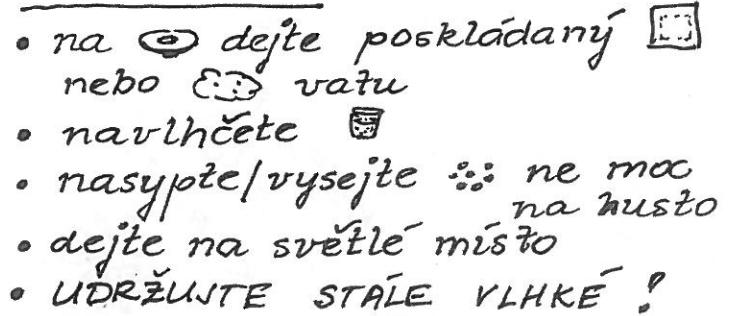 • na dejte poskládaný
nebo vatu
• navlhčete
• nasypte/vysejte ne moc
na husto
• dejte na světlé místo
• UDRŽUJTE STÁLE VLHKÉ!